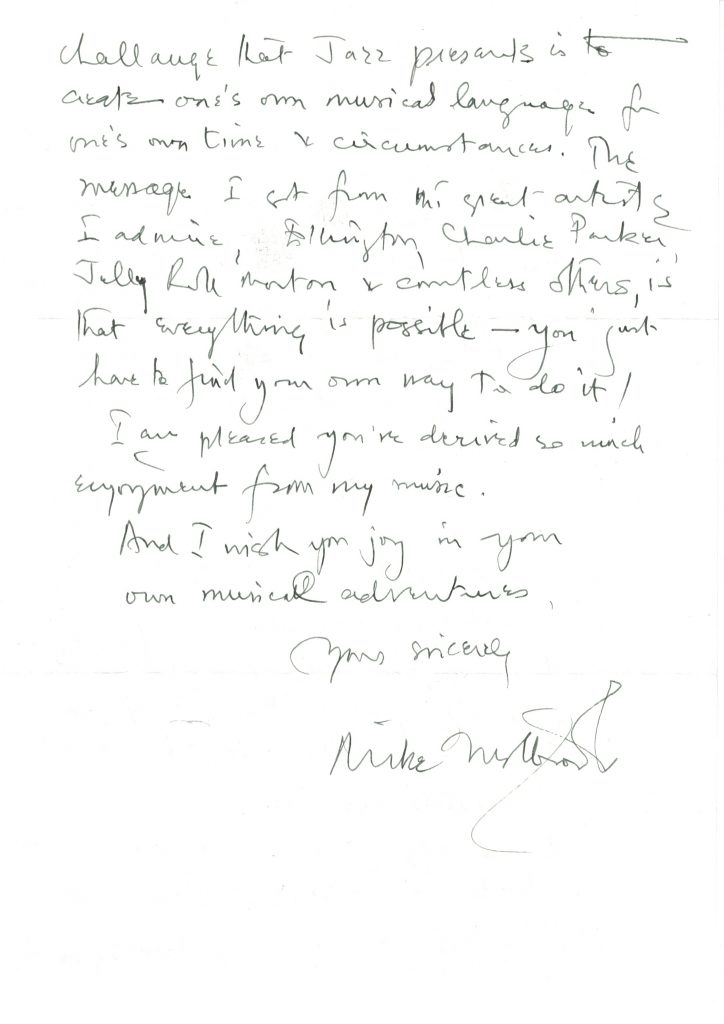 challange that Jazz presents is to
create one's own musical language for
one's own time & circumstances. The
message I get from the great artists
I admire, Ellington, Charlie Parker,
Jelly Roll Morton & countless others, is
that everything is possible — you just
have to find your own way to do it!
I am pleased you've derived so much
enjoyment from my music.
And I wish you joy in your
own musical adventures,
Yours sincerely
Mike